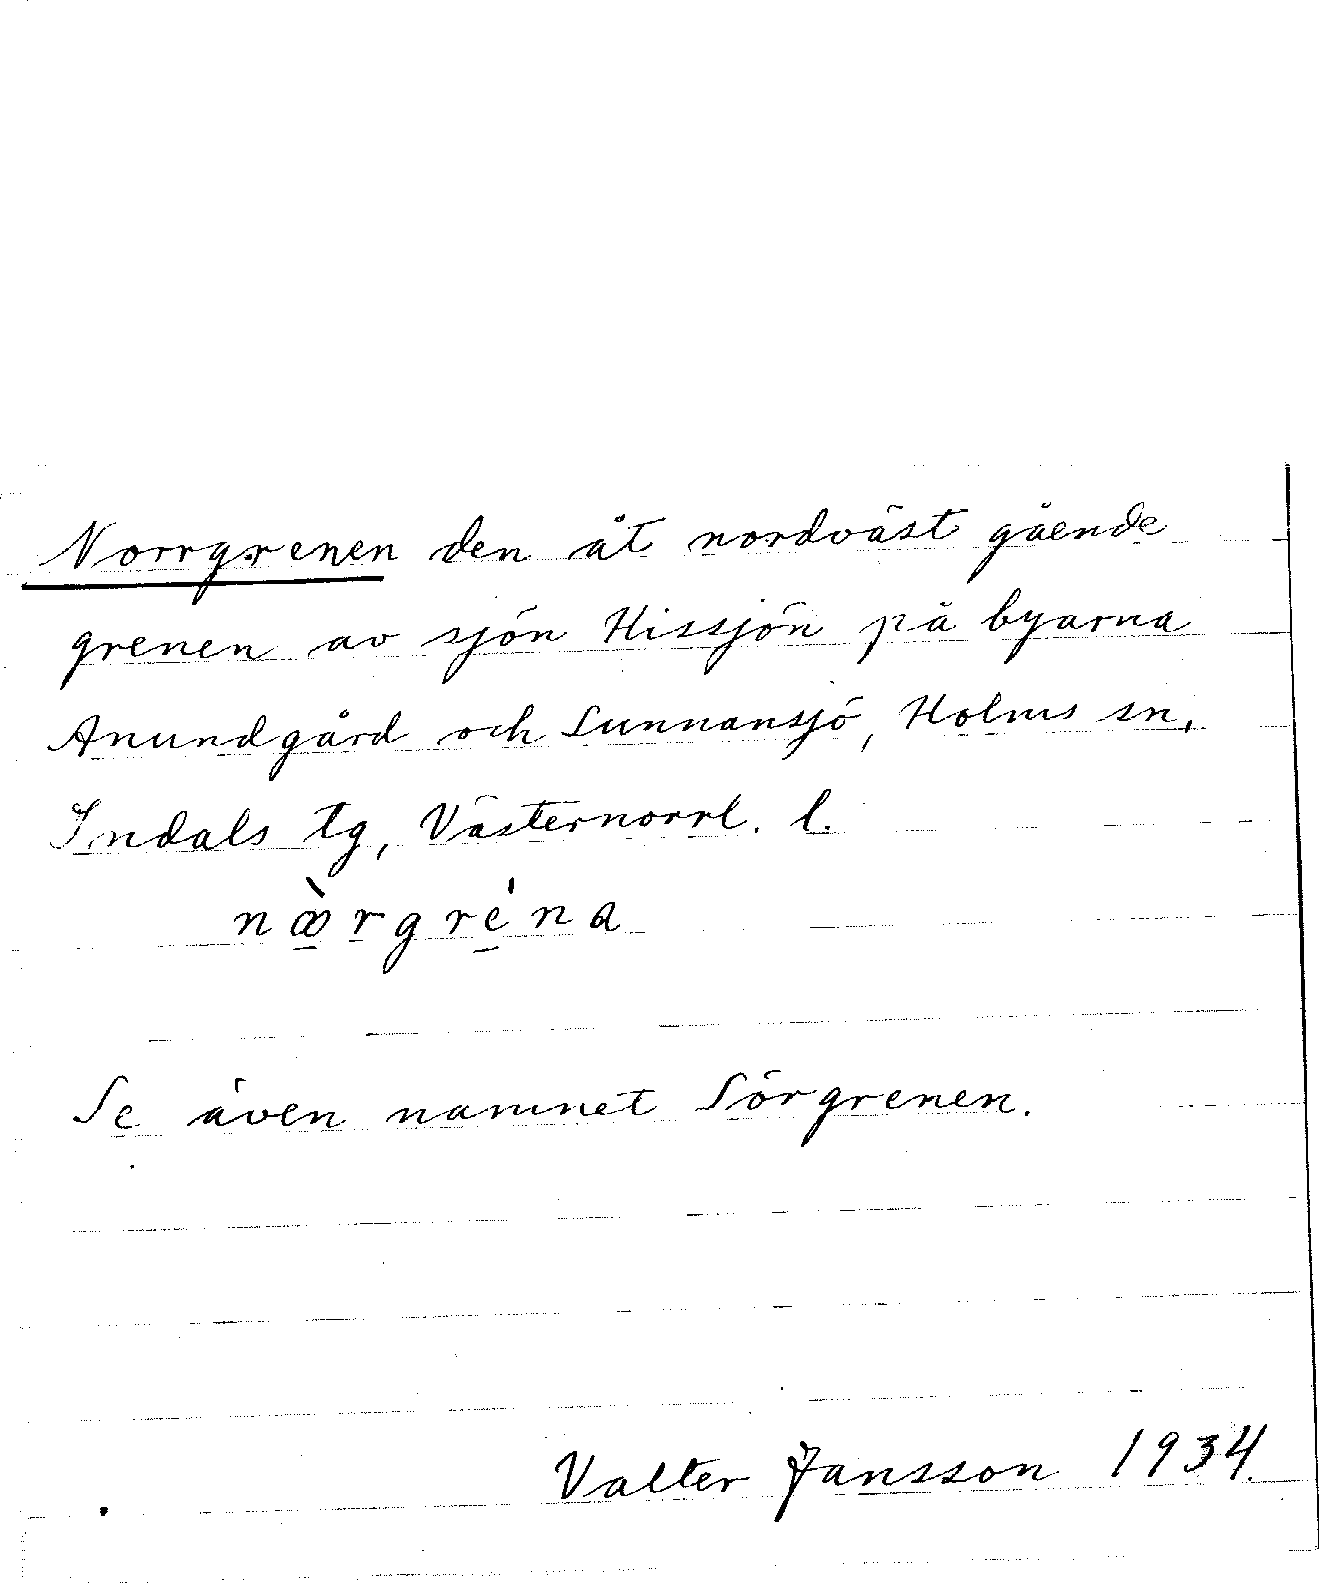 Norrgrenen den åt nordväst gående
grenen av sjön Hissjön på byarna
Anundgård och Sunnansjö, Holms sn,
Indals tg, Västernorrl. l.
Se även namnet Sörgrenen.
Valter Jansson 1934.